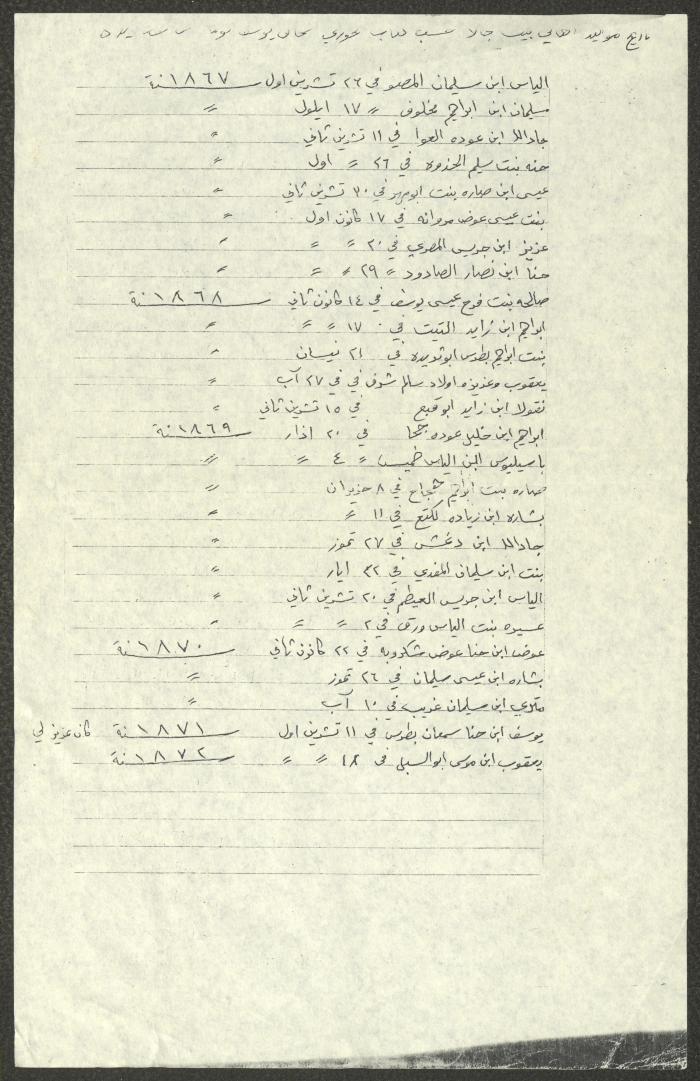 تاريخ مواليد اهالي بيت جالا حسب كتاب خوري
الياس ابن سليمان المصو في ٢٦ تشرين اول ١٨٦٧ سنة
سلمان ابن ابراهيم مخلوف 〃 ١٧ ايلول 〃
جادالله ابن عوده العوا في ١١ تشرين ثاني 〃
حنه بنت سليم الحذوه في ٢٦ 〃 اول 〃
عيسى ابن صاره بنت في ٣٠ تشرين ثاني 〃
بنت عيسى عوض مروانه في ١٧ كانون اول 〃
عزيز ابن جريس المصري في ٢٠ 〃 〃 〃
حنا ابن نصار الصادود 〃 ٢٩ 〃 〃 〃
صالحه بنت فرح عيسى يوسف في ١٤ كانون ثاني ١٨٦٨ سنة
ابراهيم ابن زايد التيت في ١٧ 〃 〃 〃
بنت ابراهيم بطرس ابوثويره في ٢١ نيسان 〃
يعقوب وعزيزه اولاد سالم شوف في في ٢٧ آب 〃
نقولا ابن زايد ابو قبع في ١٥ تشرين ثاني 〃
ابراهيم ابن خليل عوده جحا في ٢٠ اذار ١٨٦٩ سنة
باسيليوس ابن الياس خميس 〃 ٤ 〃 〃
صاره بنت ابراهيم حجاج في ٨ حزيران 〃
بشاره ابن زياده لكتع في ١١ 〃 〃
جادالله ابن دعمس في ٢٧ تموز 〃
بنت ابن سلمان المفدي في ايار 〃
الياس ابن جريس العيطم في ٢٠ تشرين ثاني 〃
عسيره بنت الياس ورق في ٢ 〃 〃 〃
عوض ابن حنا عوض شكروبه في ٢٢ كانون ثاني ١٨٧٠ سنة
بشاره ابن عيسى سليمان في ٢٦ تموز 〃
متري ابن سليمان غريب في ١٠ آب 〃
يوسف ابن حنا سمعان بطرس في ١١ تشرين اول ١٨٧١ سنة كان عزيز لي
يعقوب ابن موسى ابو السبل في ١٨ 〃 〃 ١٨٧٢ سنة